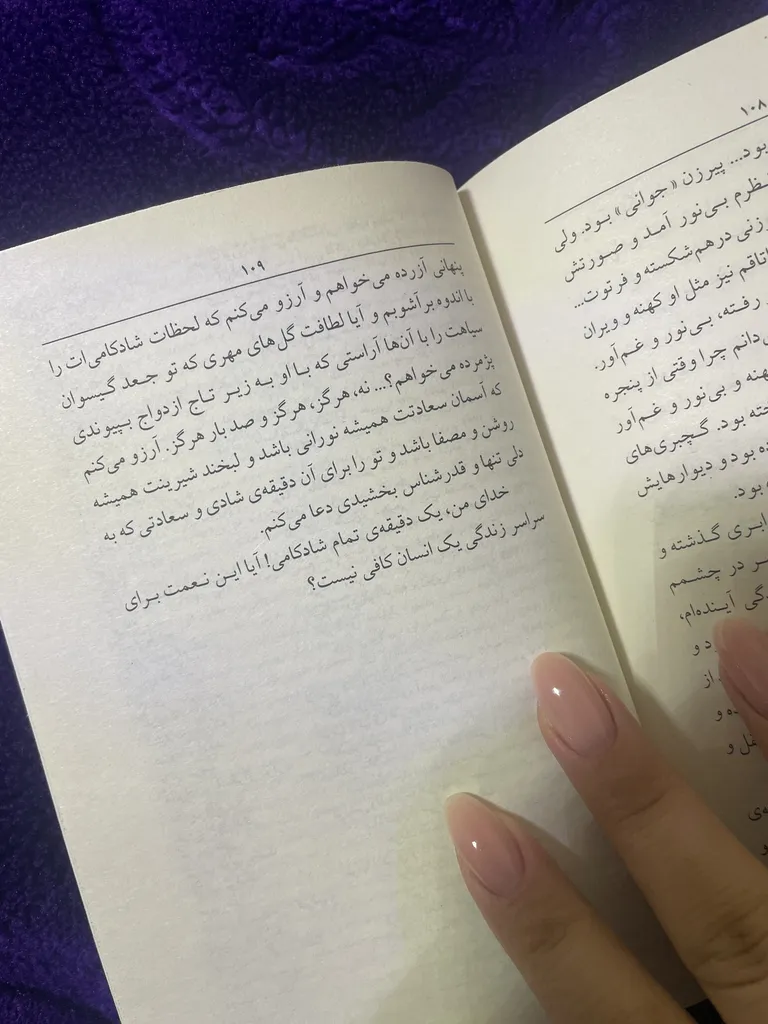 ۱۰۸
بود... پیرزن «جوانی» بود. ولی
نظرم بی‌نور آمد و صورتش
زنی درهم‌شکسته و فرتوت...
اتاقم نیز مثل او کهنه و ویران
رفته، بی‌نور و غم‌آور.
دانم چرا وقتی از پنجره
کهنه و بی‌نور و غم‌آور
بود. گچبری‌های
بود و دیوارهایش
بود.
ابری گذشته و
در چشمم
آینده‌ام،
و
از
و
و
۱۰۹
پنهانی آزرده می‌خواهم و آرزو می‌کنم که لحظات شادکامی‌ات را
با اندوه برآشوبم و آیا لطافت گل‌های مهری که تو جعد گیسوان
سیاهت را با آن‌ها آراستی که با او به زیر تاج ازدواج بپیوندی
پژمرده می‌خواهم؟... نه، هرگز، هرگز و صد بار هرگز. آرزو می‌کنم
که آسمان سعادتت همیشه نورانی باشد و لبخند شیرینت همیشه
روشن و مصفا باشد و تو را برای آن دقیقه‌ی شادی و سعادتی که به
دلی تنها و قدرشناس بخشیدی دعا می‌کنم.
خدای من، یک دقیقه‌ی تمام شادکامی! آیا این نعمت برای
سراسر زندگی یک انسان کافی نیست؟